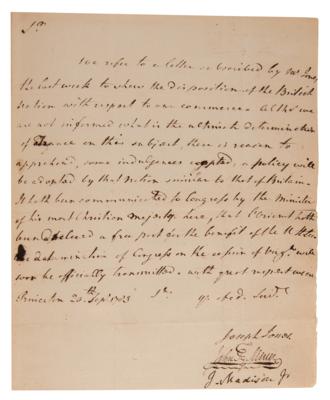 Sr.
We refer to a letter subscribed by Mr Jones
the last week to shew the disposition of the British
nation with respect to our commerce. Altho' we
are not informed what is the ultimate determination
of France on this subject, there is reason to
apprehend, some indulgences excepted, a policy will
be adopted by that nation similar to that of Britain.
It hath been communicated to Congress by the Minister
of his most Christian majesty here, that L'Orient hath
been declared a free port for the benefit of the U. States
the determination of Congress on the cession of Virga. will
soon be officially transmitted. with great respect we are
Princeton 20th Sepr 1783 Sr. yr. obed. Servts.
Joseph Jones
John F. Mercer
J. Madison Jr